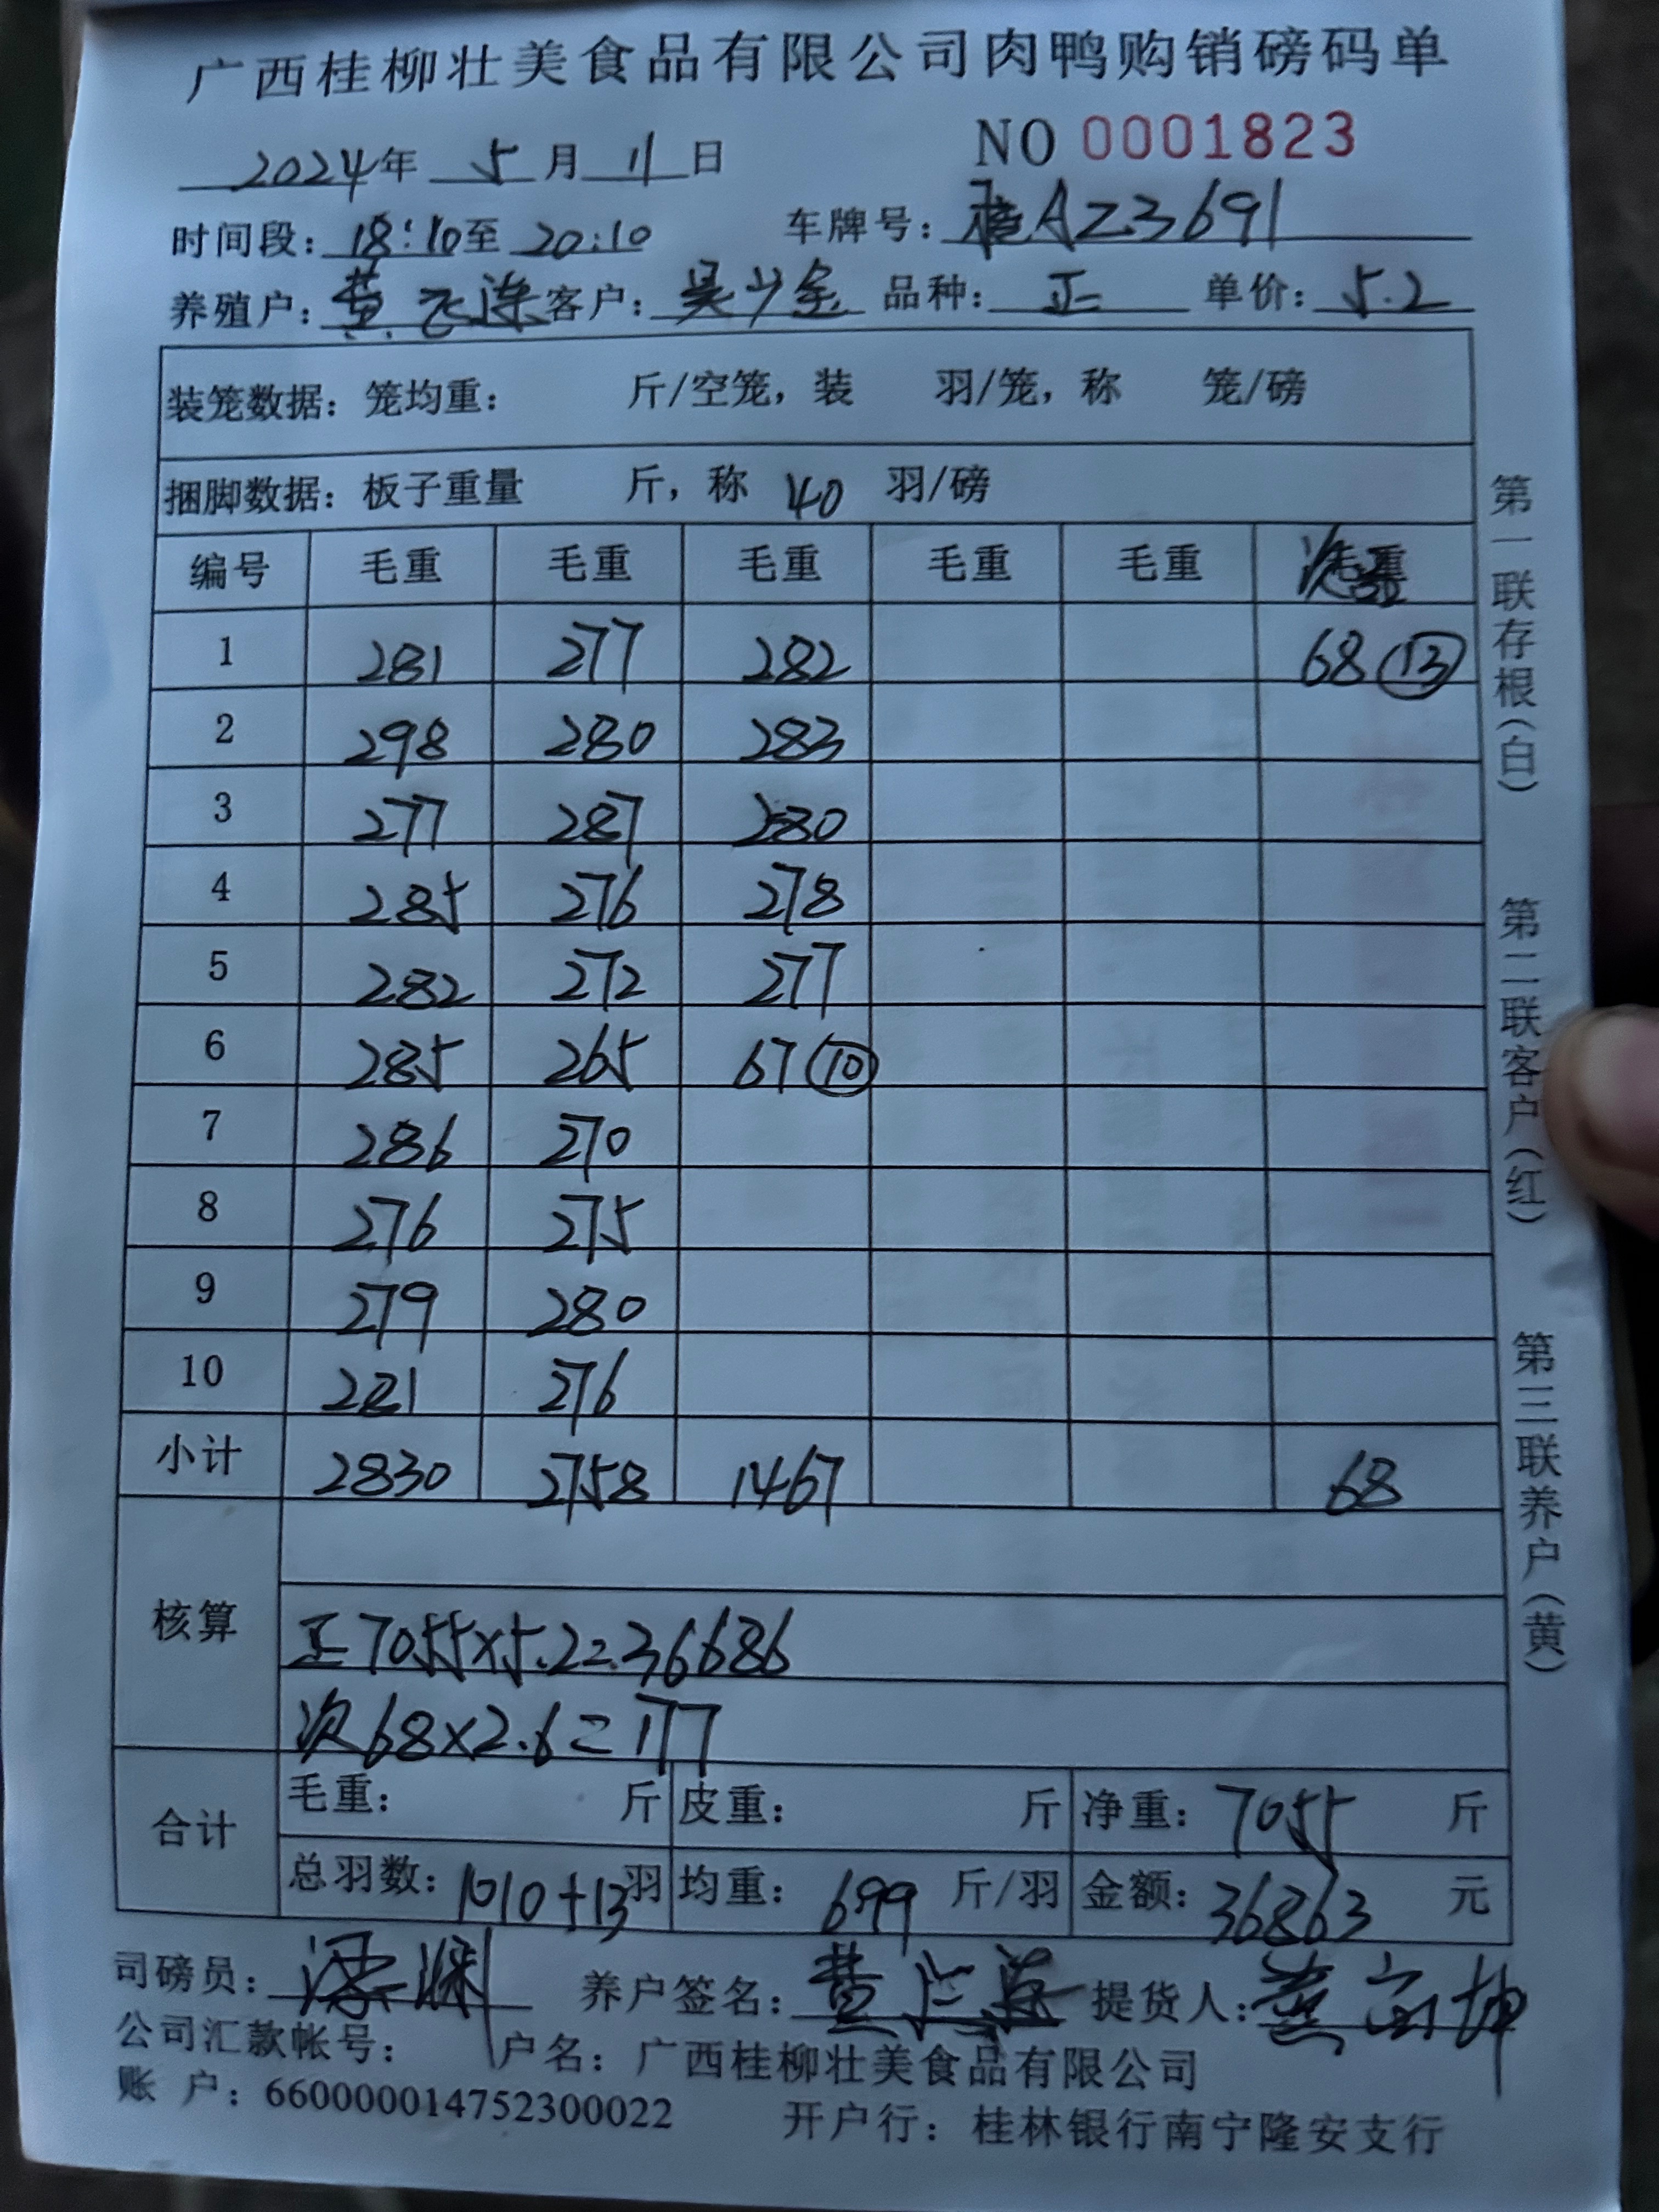 广西桂柳壮美食品有限公司肉鸭购销磅码单
2024年 5月 11日 NO 0001823
时间段：18:10至 20:10 车牌号：桂AZ3691
养殖户：黄飞 客户：吴少金 品种：正 单价：5.2
装笼数据：笼均重： 斤/空笼，装 羽/笼，称 笼/磅
捆脚数据：板子重量 斤，称 40 羽/磅
编号 毛重 毛重 毛重 毛重 毛重 毛重
1 281 277 282 68 ⑬
2 298 280 283
3 277 287 280
4 285 276 278
5 282 272 277
6 285 265 67 ⑩
7 286 270
8 276 275
9 279 280
10 281 276
小计 2830 2758 1467 68
核算
正 7055×5.2=36686
次 68×2.6=177
合计 毛重： 斤 皮重： 斤 净重：7055 斤
总羽数：1010+13羽 均重：699 斤/羽 金额：36863 元
司磅员： 养户签名：黄 提货人：
公司汇款帐号： 户名：广西桂柳壮美食品有限公司
账 户：660000014752300022 开户行：桂林银行南宁隆安支行
第一联存根（白）
第二联客户（红）
第三联养户（黄）